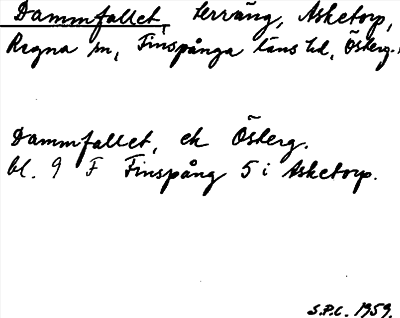 Dammfallet, terräng, Asketorp,
Regna sn, Finspånga läns hd, Österg.
Dammfallet, ek Österg.
bl. 9 F Finspång 5 i Asketorp.
S.P.C. 1959.